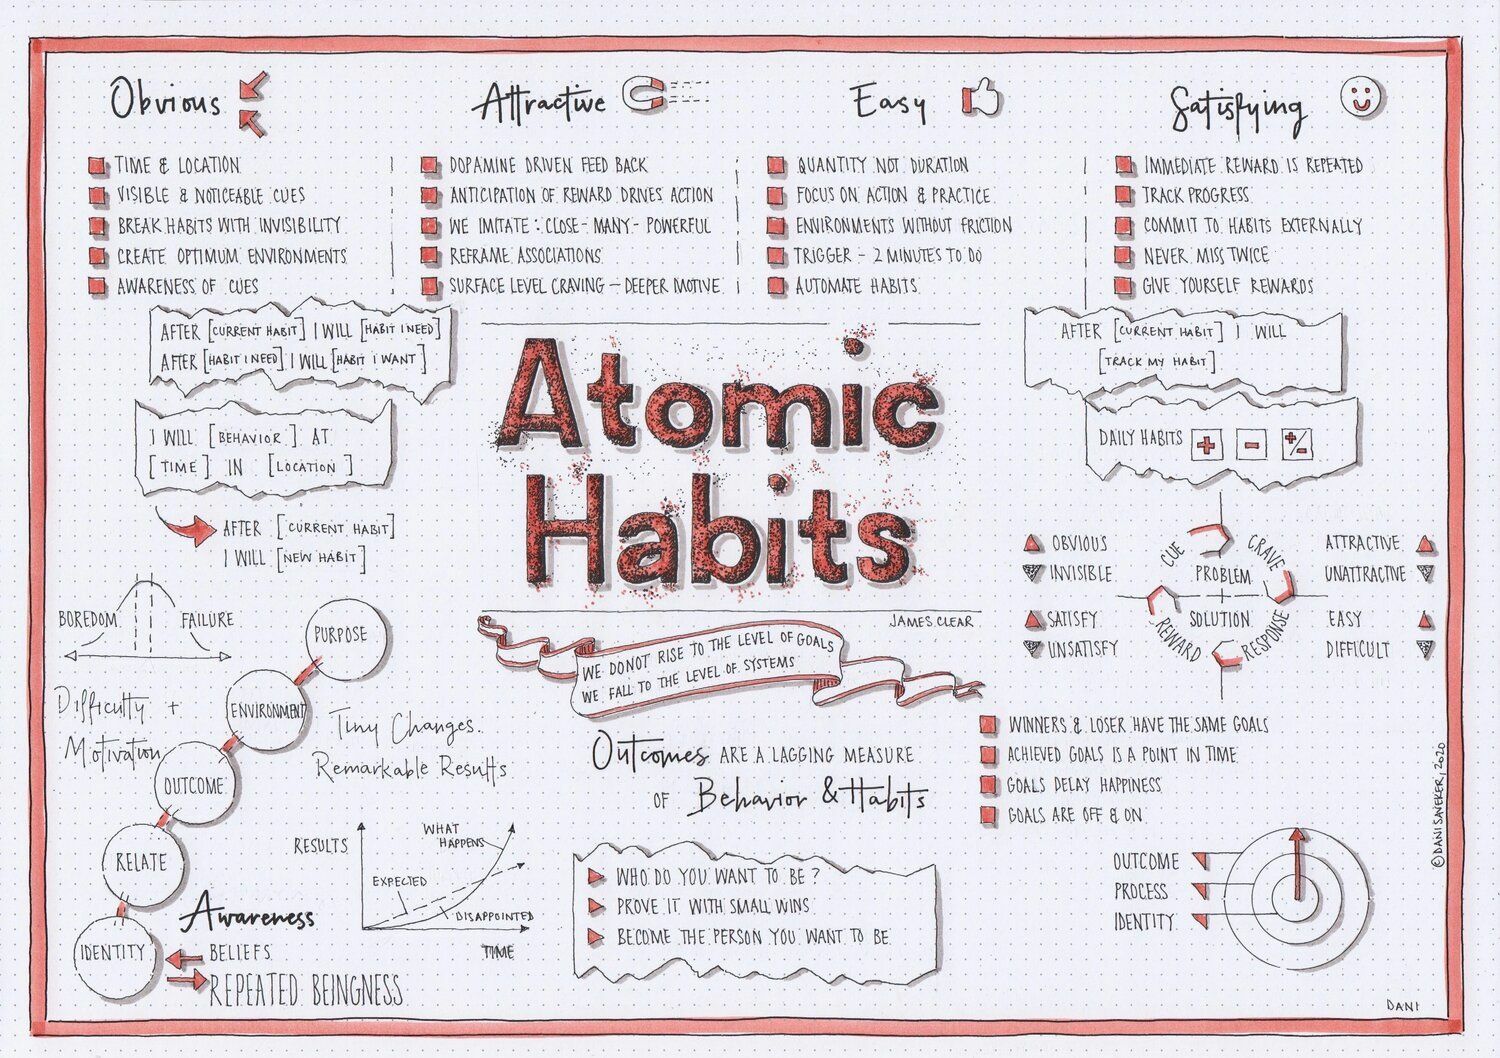 Obvious
TIME & LOCATION
VISIBLE & NOTICEABLE CUES
BREAK HABITS WITH INVISIBILITY
CREATE OPTIMUM ENVIRONMENTS
AWARENESS OF CUES
Attractive
DOPAMINE DRIVEN FEED BACK
ANTICIPATION OF REWARD DRIVES ACTION
WE IMITATE : CLOSE - MANY - POWERFUL
REFRAME ASSOCIATIONS
SURFACE LEVEL CRAVING - DEEPER MOTIVE
Easy
QUANTITY NOT DURATION
FOCUS ON ACTION & PRACTICE
ENVIRONMENTS WITHOUT FRICTION
TRIGGER - 2 MINUTES TO DO
AUTOMATE HABITS
Satisfying
IMMEDIATE REWARD IS REPEATED
TRACK PROGRESS
COMMIT TO HABITS EXTERNALLY
NEVER MISS TWICE
GIVE YOURSELF REWARDS
AFTER [CURRENT HABIT] I WILL [HABIT I NEED]
AFTER [HABIT I NEED] I WILL [HABIT I WANT]
I WILL [BEHAVIOR] AT
[TIME] IN [LOCATION]
AFTER [CURRENT HABIT]
I WILL [NEW HABIT]
Atomic
Habits
JAMES CLEAR
WE DONOT RISE TO THE LEVEL OF GOALS
WE FALL TO THE LEVEL OF SYSTEMS
AFTER [CURRENT HABIT] I WILL
[TRACK MY HABIT]
DAILY HABITS + - +/-
OBVIOUS
INVISIBLE
CUE
CRAVE
PROBLEM
ATTRACTIVE
UNATTRACTIVE
SATISFY
UNSATISFY
REWARD
SOLUTION
RESPONSE
EASY
DIFFICULT
BOREDOM
FAILURE
Difficulty +
Motivation
PURPOSE
ENVIRONMENT
OUTCOME
RELATE
IDENTITY
Tiny Changes.
Remarkable Results
Awareness
BELIEFS
REPEATED BEINGNESS
RESULTS
WHAT
HAPPENS
EXPECTED
DISAPPOINTED
TIME
Outcomes ARE A LAGGING MEASURE
OF Behavior & Habits
WHO DO YOU WANT TO BE ?
PROVE IT WITH SMALL WINS
BECOME THE PERSON YOU WANT TO BE
WINNERS & LOSER HAVE THE SAME GOALS
ACHIEVED GOALS IS A POINT IN TIME
GOALS DELAY HAPPINESS
GOALS ARE OFF & ON
OUTCOME
PROCESS
IDENTITY
© DANI SAVEKER, 2020
DANI